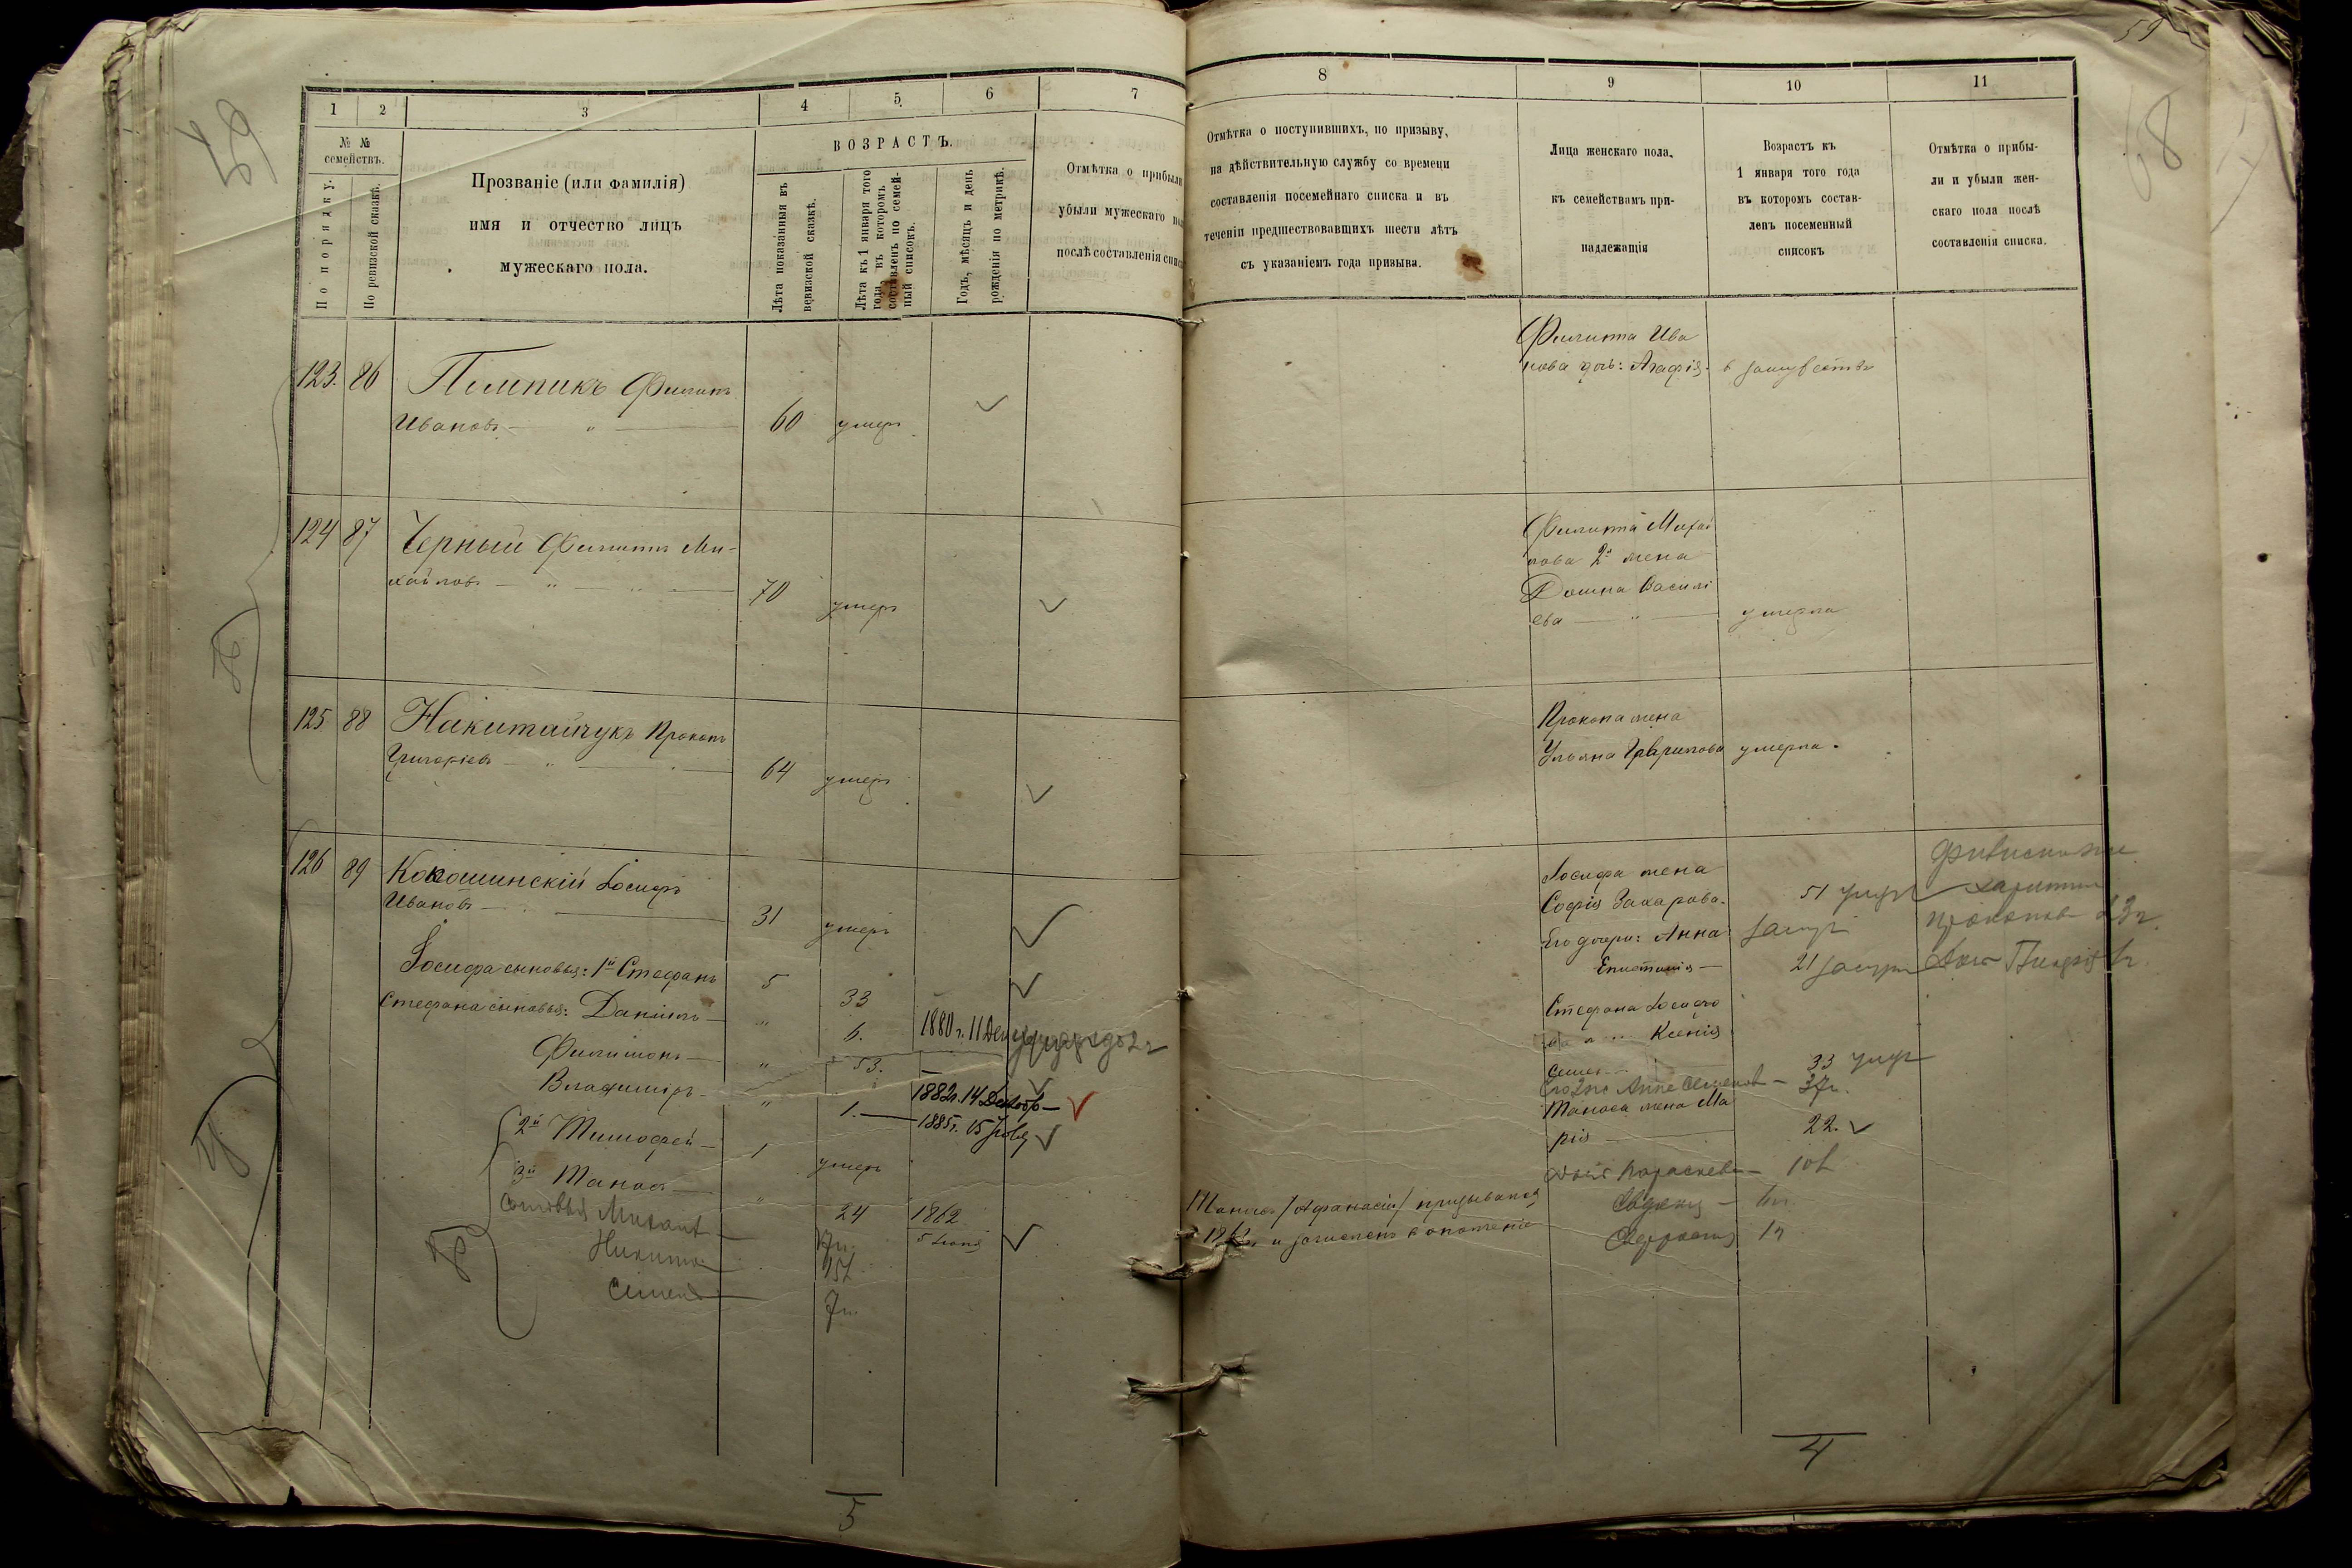 59
1 2 3 4 5 6 7
№ № семействъ.
По порядку.
По ревизской сказкѣ.
Прозваніе (или фамилія)
имя и отчество лицъ
мужескаго пола.
ВОЗРАСТЪ.
Лѣта показанныя въ
ревизской сказкѣ.
Лѣта къ 1 января того
года, въ которомъ
составленъ по семей-
ный списокъ.
Годъ, мѣсяцъ и день
рожденія по метрикѣ.
Отмѣтка о прибыли
убыли мужескаго по
послѣ составленія спис
123. 86 Филипъ
Ивановъ — " — 60 умеръ
124 87 Черный Филиппъ Ми-
хайловъ — " — " — 70 умеръ
125. 88 Накитайчукъ Прокопъ
Григоріевъ — " — 64 умеръ
126 89 Кокошинскій Іосифъ
Ивановъ — 31 умеръ
Іосифа сыновья: 1й Стефанъ 5 33
Стефана сыновья: Даніилъ — " 6. 1880 г. 11 Дек
Филимонъ — " 3.
Владиміръ — " 1. — 1882г. 14 Декабр —
1885г. 15
2й Тимофей — 1 умеръ
3й Танасъ — " 24 1862
сыновья — 17л. 5
Никита 15л
Семенъ 7л.
5
59
68
8 9 10 11
Отмѣтка о поступившихъ, по призыву,
на дѣйствительную службу со времени
составленія посемейнаго списка и въ
теченіи предшествовавшихъ шести лѣтъ
съ указаніемъ года призыва.
Лица женскаго пола,
къ семействамъ при-
надлежащія
Возрастъ къ
1 января того года
въ которомъ состав-
ленъ посеменный
списокъ
Отмѣтка о прибы-
ли и убыли жен-
скаго пола послѣ
составленія списка.
Филиппа Ива
нова дочь: Агафія. в замужествѣ
Филиппа Михай
лова 2я жена
Домна Василі
ева — " — умерла
Прокопа жена
Ульяна Гаврилова умерла.
Іосифа жена
Софія Захарова. 51 умер
Его дочери: Анна замуж
Епистимія — 21 замуж
Стефана Іосифо
ва " " Ксенія
33 умер
Его 2я Анна Семенов — 37л.
Танаса жена Ма
рія — 22.
дочь Параскева — 10л
Танасъ /Афанасій/ призывался
и зачисленъ в ополченіе
1л
4